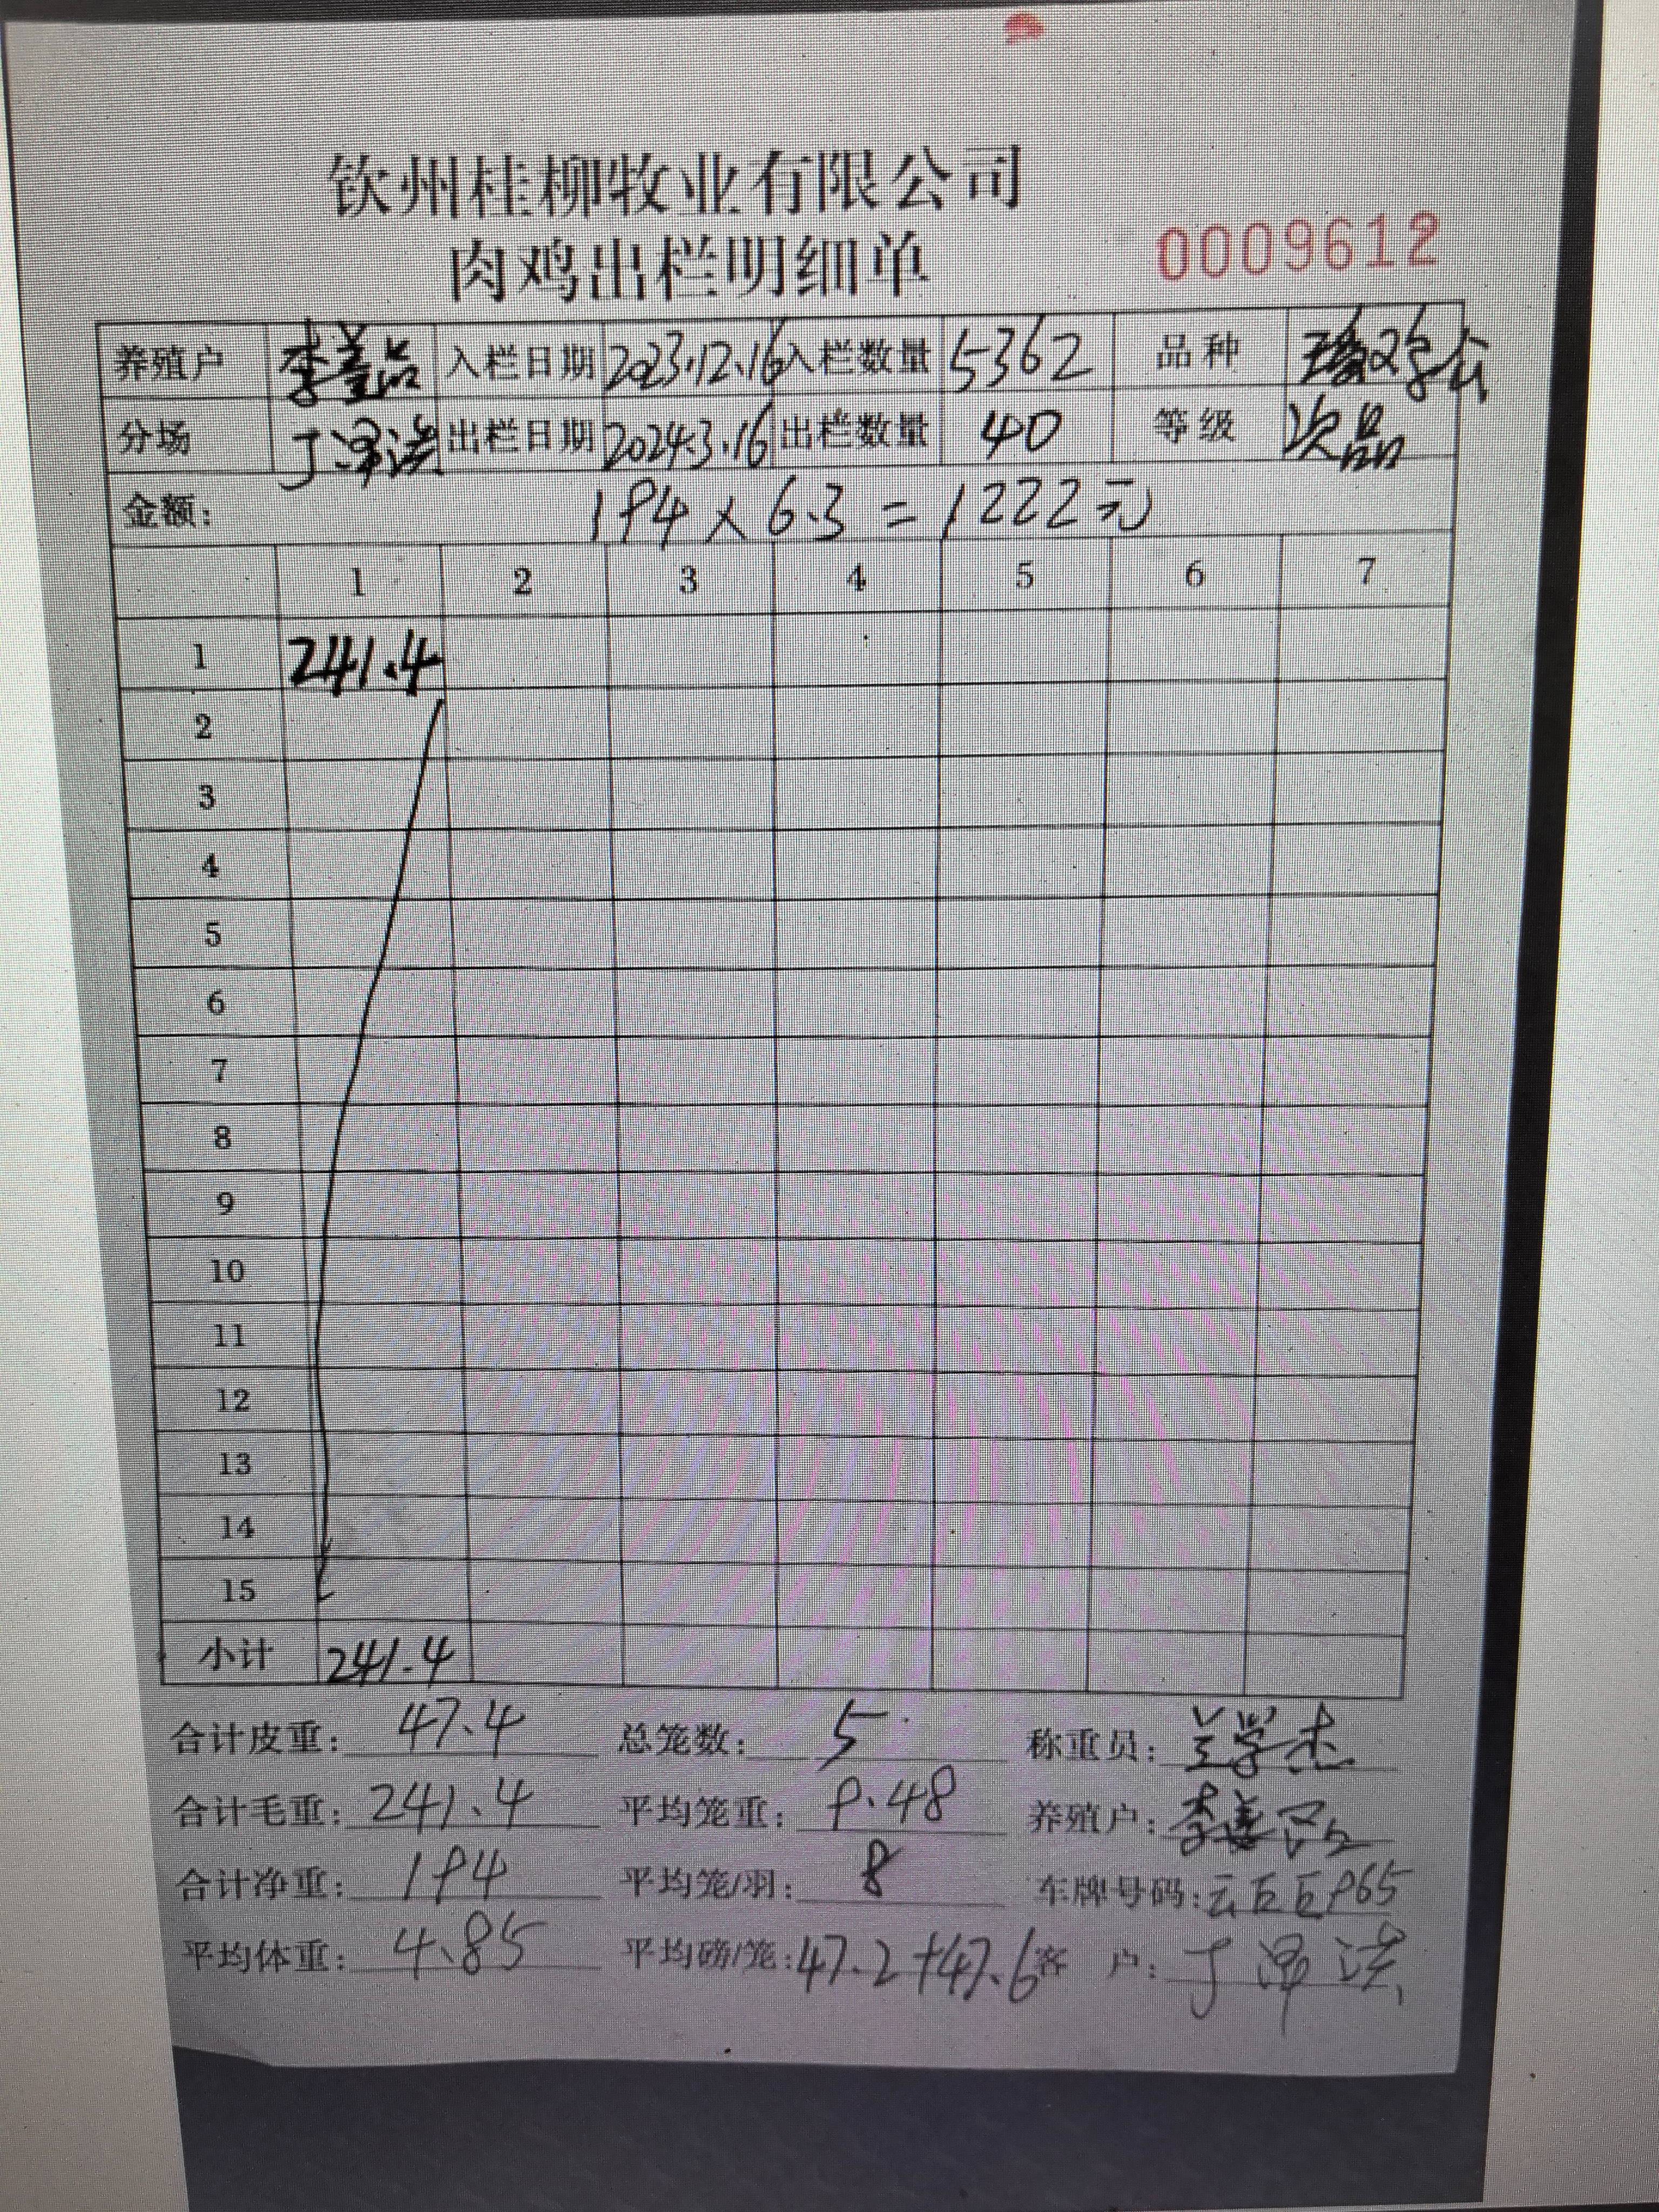 钦州桂柳牧业有限公司
肉鸡出栏明细单 0009612
养殖户 李 入栏日期 2023.12.16 入栏数量 5362 品种
分场 丁 出栏日期 2024.3.16 出栏数量 40 等级 次品
金额: 194 x 6.3 = 1222元
1 2 3 4 5 6 7
1 241.4
2
3
4
5
6
7
8
9
10
11
12
13
14
15
小计 241.4
合计皮重: 47.4 总笼数: 5 称重员: 学杰
合计毛重: 241.4 平均笼重: 9.48 养殖户: 李
合计净重: 194 平均笼/羽: 8 车牌号码: 云 965
平均体重: 4.85 平均磅/笼: 47.2+47.6 客 户: 丁